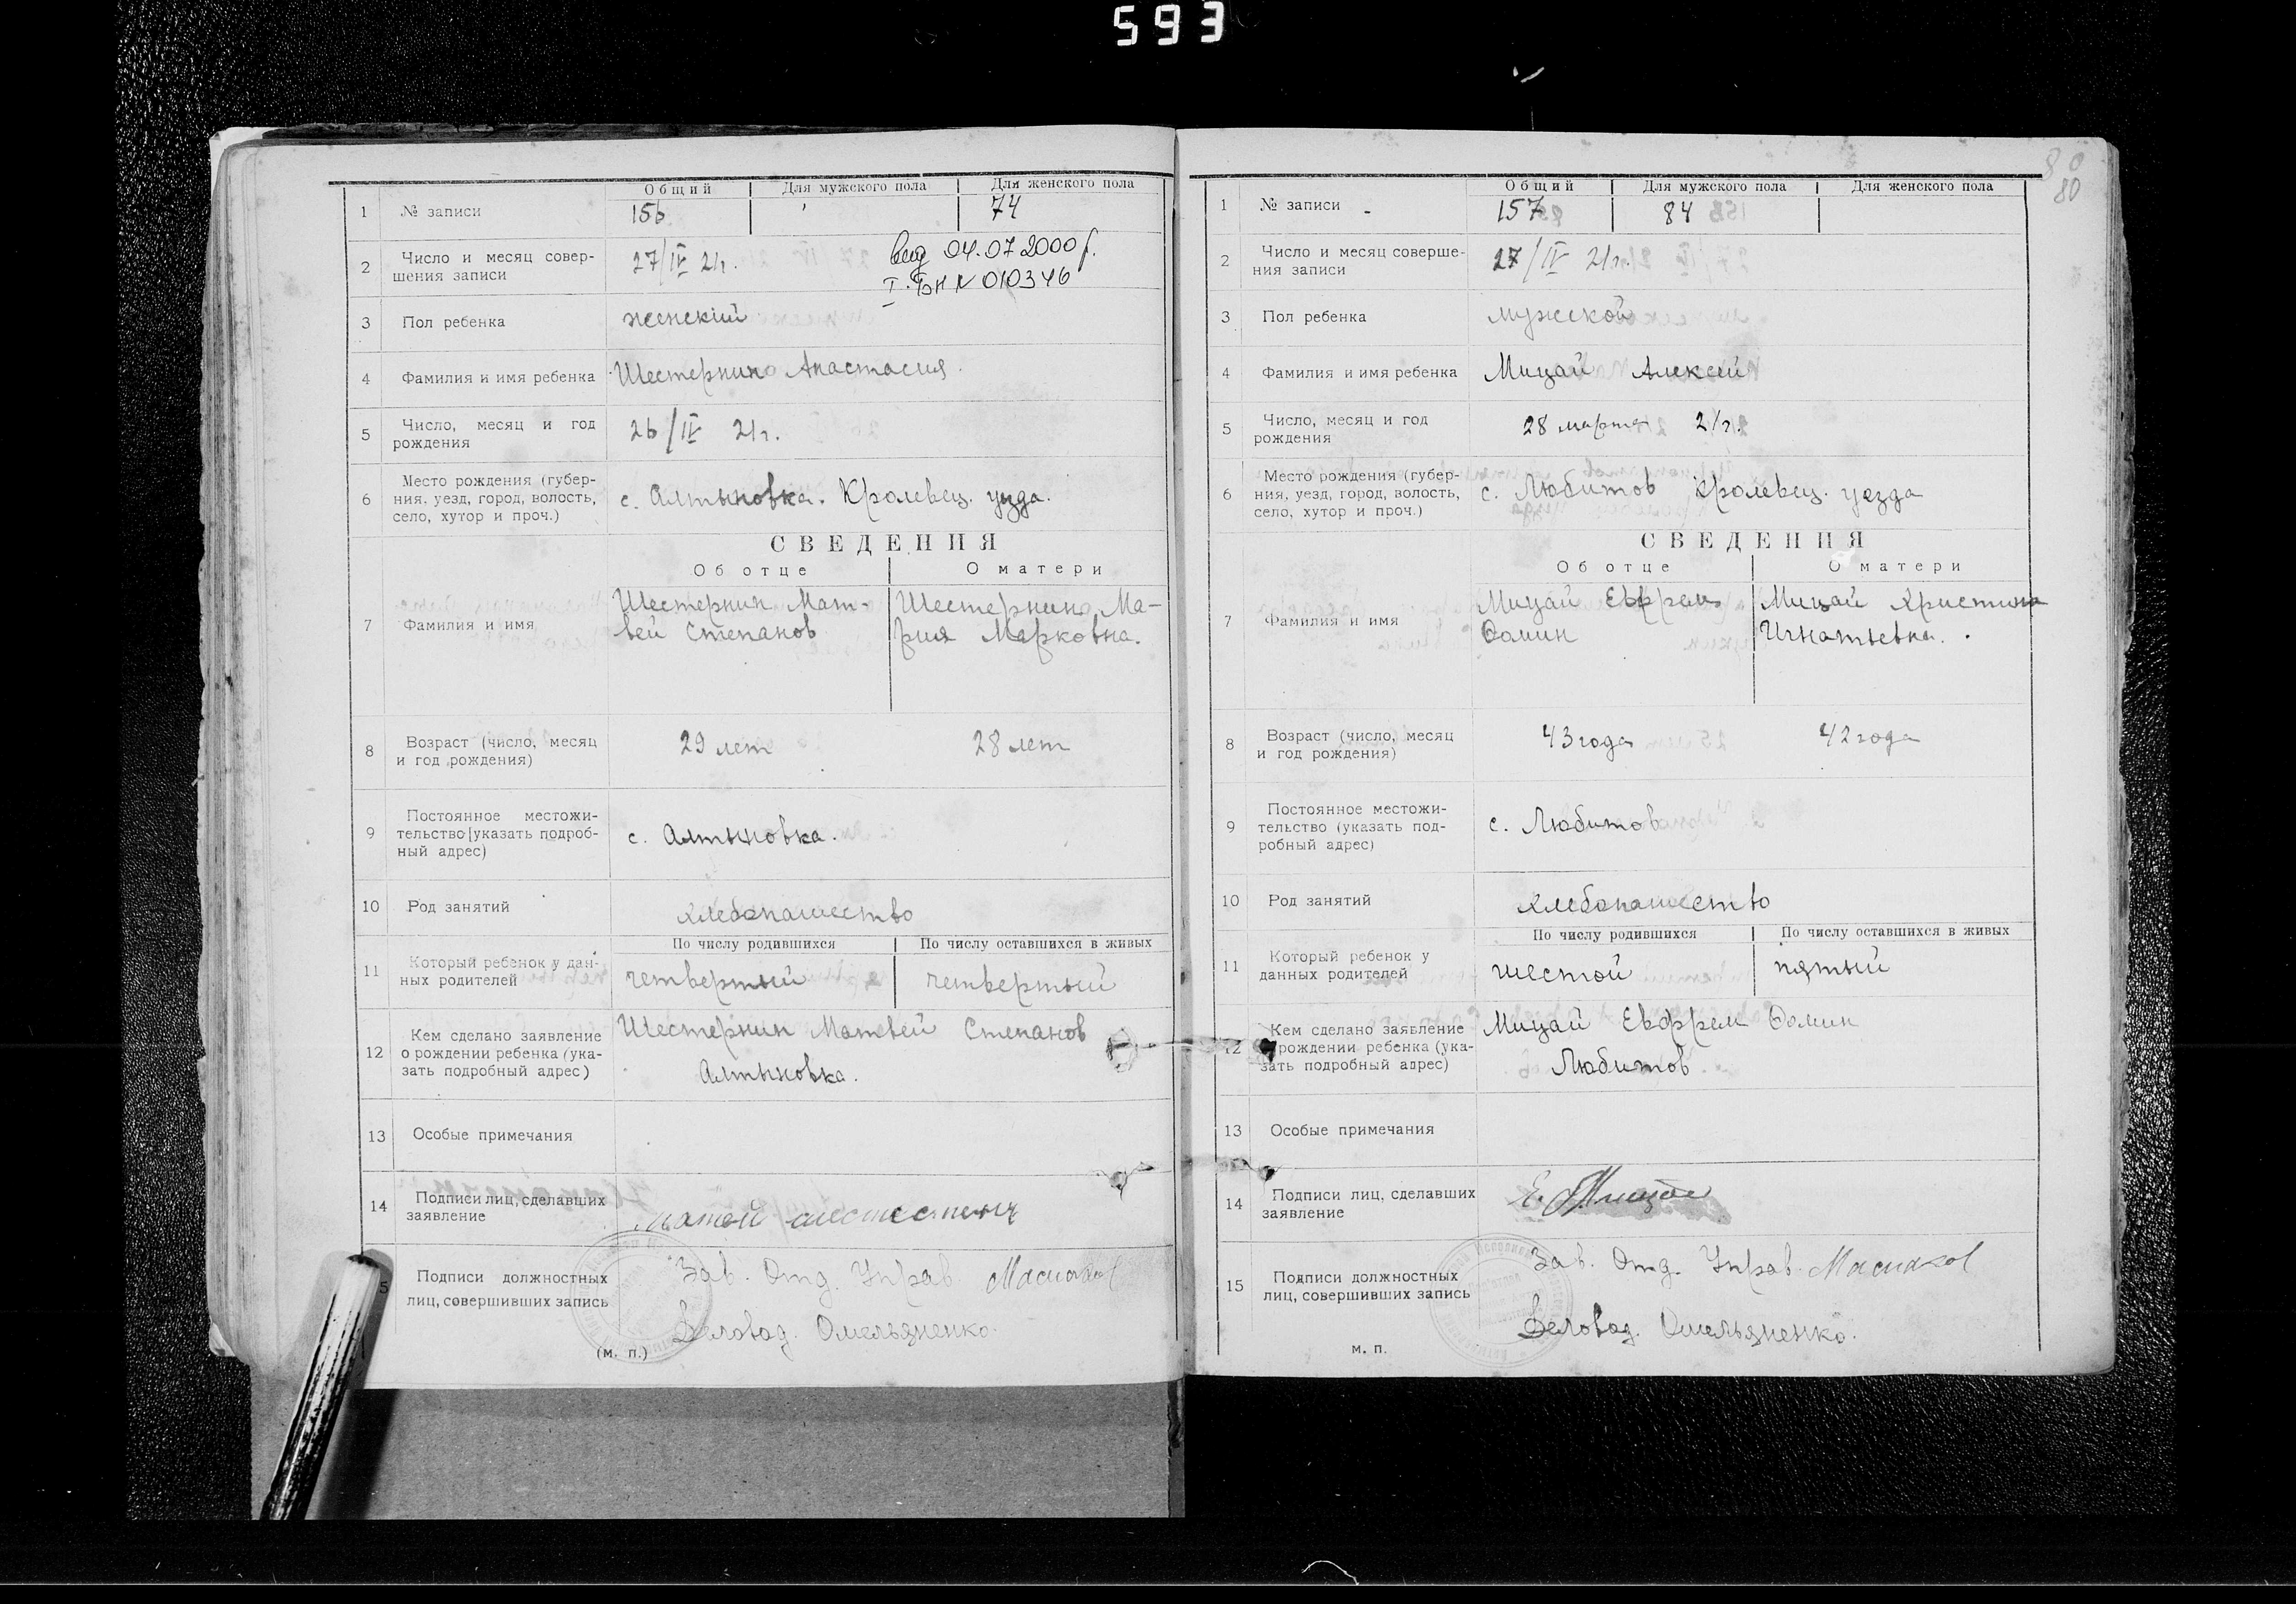 593
80
80
Общий Для мужского пола Для женского пола
1 № записи 156 74
2 Число и месяц совер-
шения записи 27/IV 21г. вид 04.07.2000 г.
I-БН № 010346
3 Пол ребенка женский
4 Фамилия и имя ребенка Шестернино Анастасия
5 Число, месяц и год
рождения 26/IV 21г.
6 Место рождения (губер-
ния, уезд, город, волость,
село, хутор и проч.) с. Алтыновка. Кролевец. уезда.
СВЕДЕНИЯ
Об отце О матери
7 Фамилия и имя
Шестернин Мат-
вей Степанов
Шестернино Ма-
рия Марковна.
8 Возраст (число, месяц
и год рождения) 29 лет 28 лет
9 Постоянное местожи-
тельство [указать подроб-
ный адрес) с. Алтыновка.
10 Род занятий хлебопашество
По числу родившихся По числу оставшихся в живых
11 Который ребенок у дан-
ных родителей четвертый четвертый
12 Кем сделано заявление
о рождении ребенка (ука-
зать подробный адрес)
Шестернин Матвей Степанов
Алтыновка.
13 Особые примечания
14 Подписи лиц, сделавших
заявление
5 Подписи должностных
лиц, совершивших запись
Зав. Отд. Управ.
Деловод. Омельяненко.
(м. п.)
Общий Для мужского пола Для женского пола
1 № записи 157 84
2 Число и месяц соверше-
ния записи 27/IV 21г.
3 Пол ребенка мужской
4 Фамилия и имя ребенка Мицай Алексей
5 Число, месяц и год
рождения 28 марта 21г.
6 Место рождения (губер-
ния, уезд, город, волость,
село, хутор и проч.) с. Любитов Кролевец. уезда
СВЕДЕНИЯ
Об отце О матери
7 Фамилия и имя
Мицай Евфрем
Фомин
Мицай Кристина
Игнатьевна.
8 Возраст (число, месяц
и год рождения) 43 года 42 года
9 Постоянное местожи-
тельство (указать под-
робный адрес) с. Любитов
10 Род занятий хлебопашество
По числу родившихся По числу оставшихся в живых
11 Который ребенок у
данных родителей шестой пятый
12 Кем сделано заявление
рождении ребенка (ука-
зать подробный адрес)
Мицай Евфрем Фомин
Любитов
13 Особые примечания
14 Подписи лиц, сделавших
заявление Е. Мицай
15 Подписи должностных
лиц, совершивших запись
Зав. Отд. Управ.
Деловод. Омельяненко.
м. п.